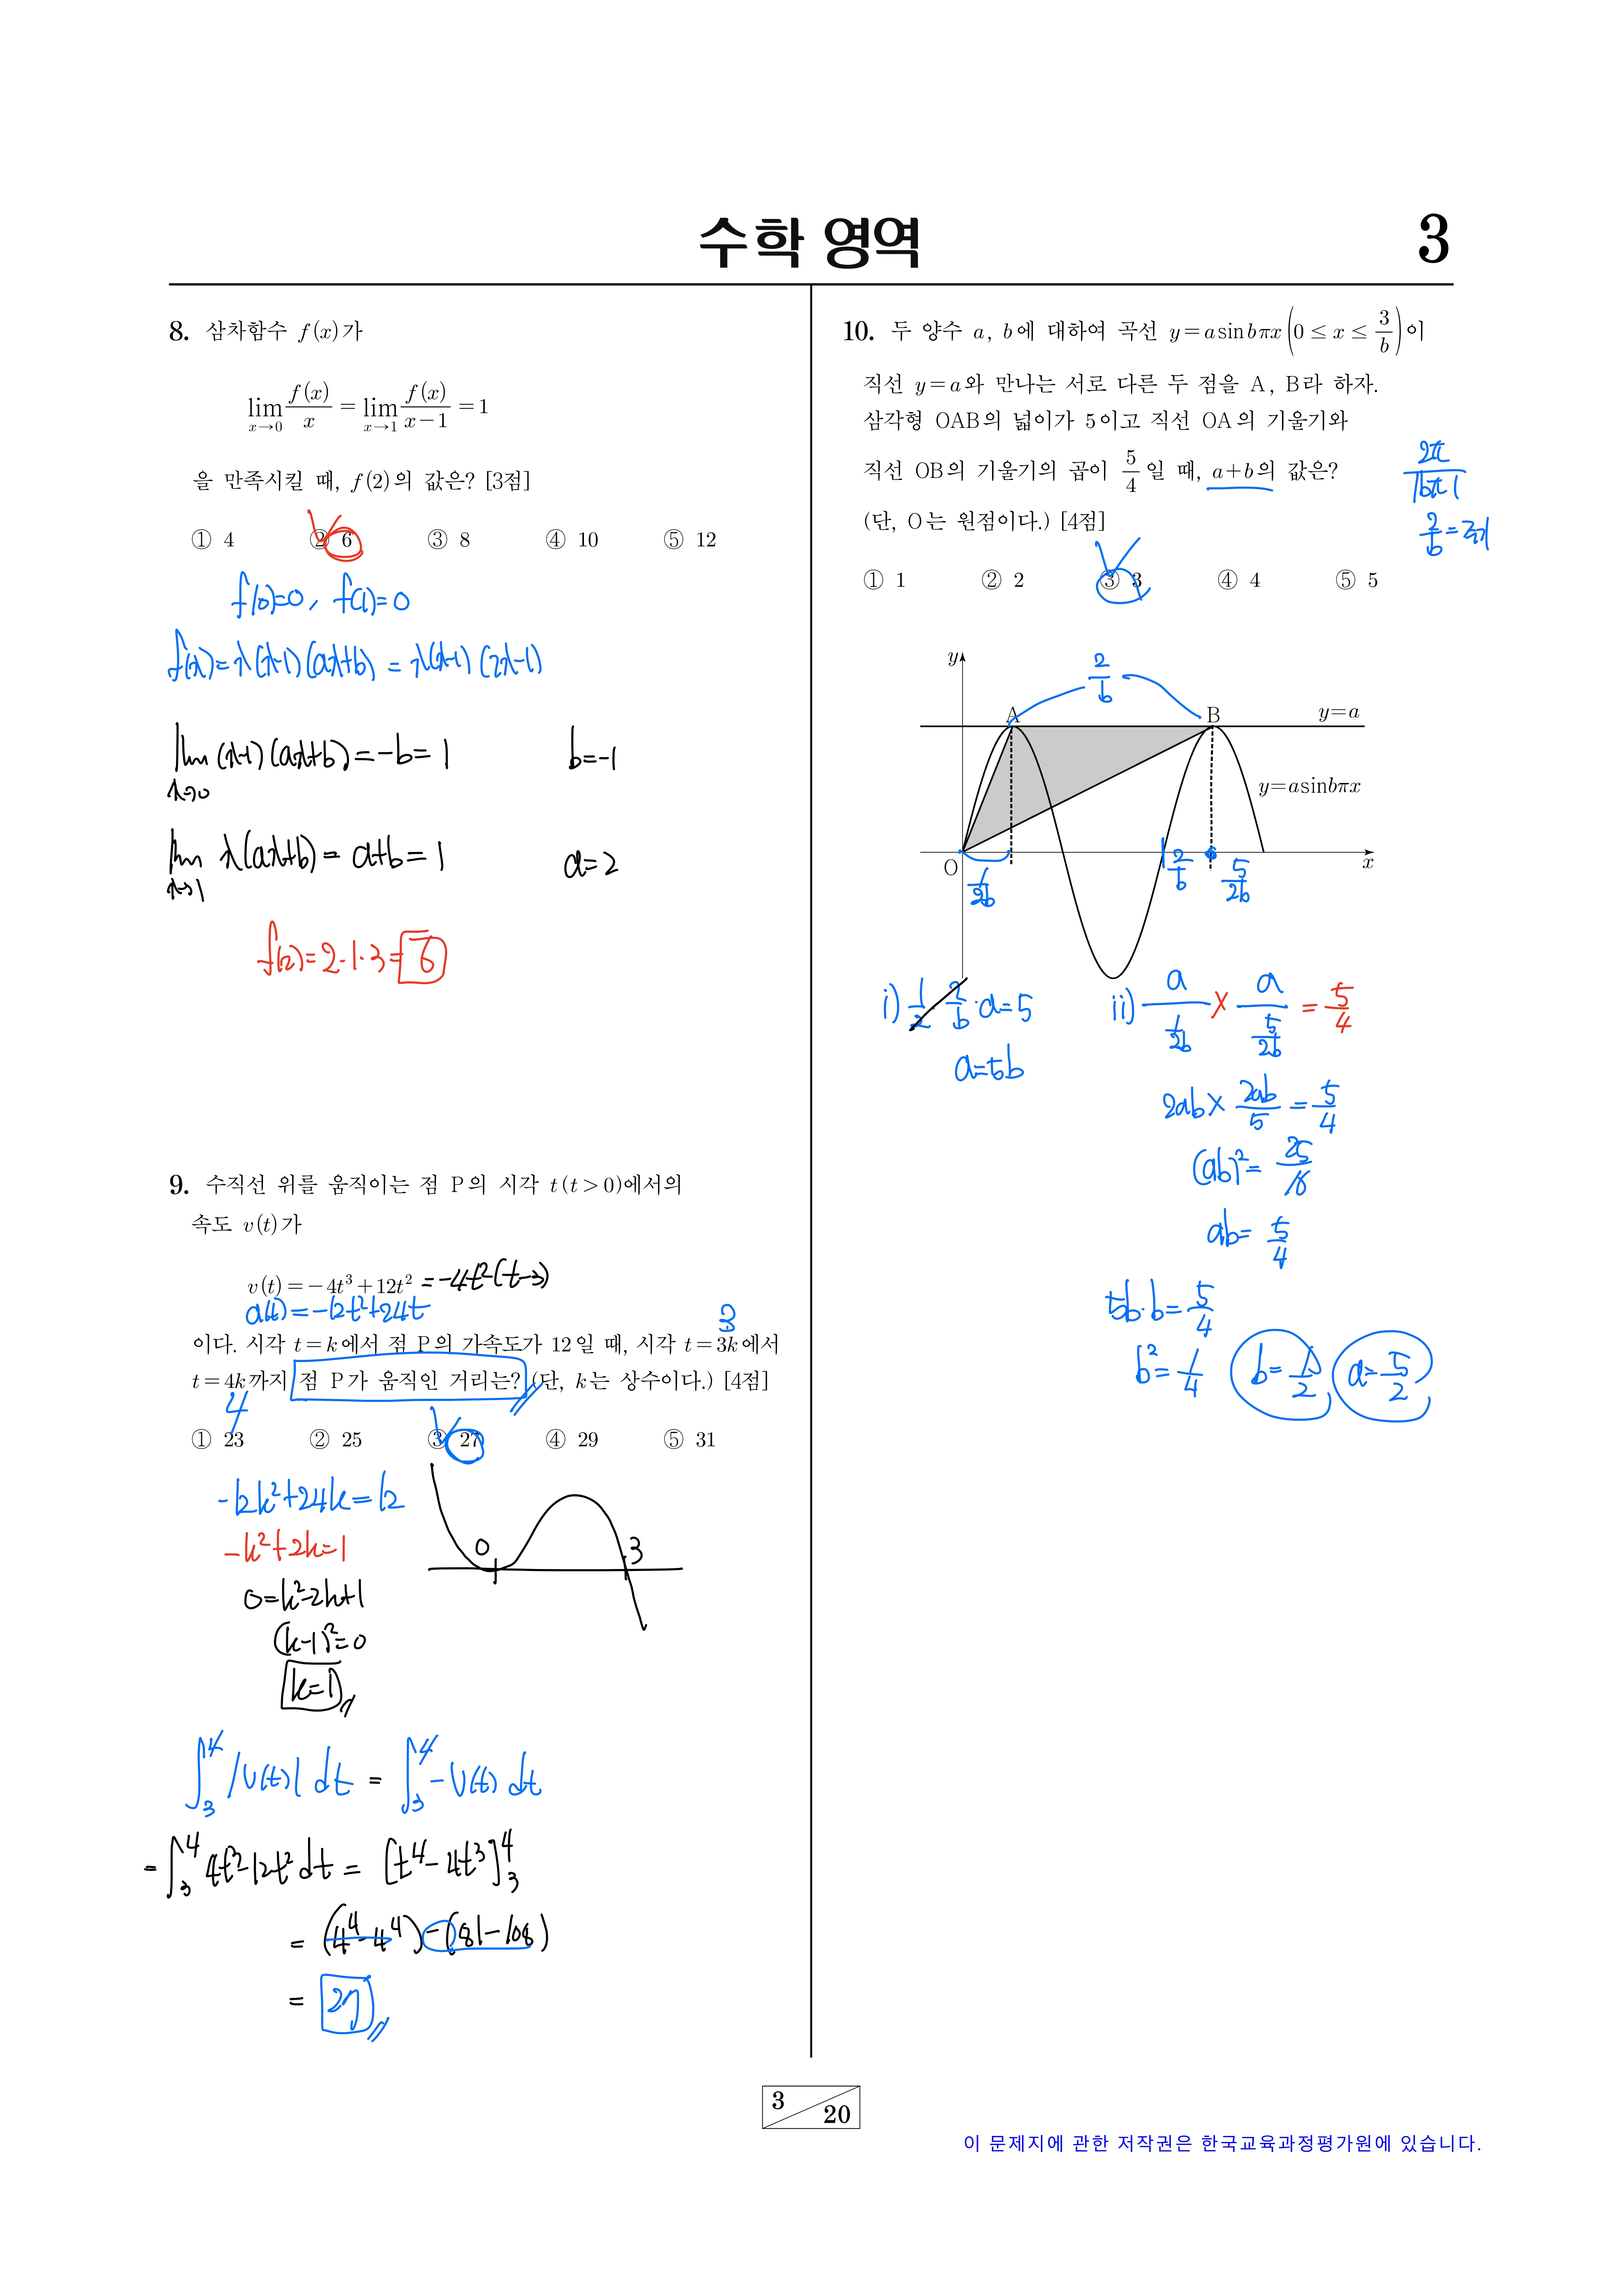 수학 영역
3
8. 삼차함수 f(x)가
lim_{x→0} f(x)/x = lim_{x→1} f(x)/(x-1) = 1
을 만족시킬 때, f(2)의 값은? [3점]
① 4 ② 6 ③ 8 ④ 10 ⑤ 12
f(0)=0, f(1)=0
f(x)=x(x-1)(ax+b) = x(x-1)(2x-1)
lim_{x→0} (x-1)(ax+b)=-b=1 b=-1
lim_{x→1} x(ax+b)=a+b=1 a=2
f(2)=2·1·3=6
9. 수직선 위를 움직이는 점 P의 시각 t(t>0)에서의
속도 v(t)가
v(t)=-4t³+12t² =-4t²(t-3)
a(t)=-12t²+24t
3
이다. 시각 t=k에서 점 P의 가속도가 12일 때, 시각 t=3k에서
t=4k까지 점 P가 움직인 거리는? (단, k는 상수이다.) [4점]
4
① 23 ② 25 ③ 27 ④ 29 ⑤ 31
-12k²+24k=12
-k²+2k=1
0=k²-2k+1
(k-1)²=0
k=1
0 3
∫₃⁴ |v(t)| dt = ∫₃⁴ -v(t) dt
= ∫₃⁴ 4t³-12t² dt = [t⁴-4t³]₃⁴
= (4⁴-4⁴)-(81-108)
= 27
10. 두 양수 a, b에 대하여 곡선 y=a sin bπx (0≤x≤3/b)이
직선 y=a와 만나는 서로 다른 두 점을 A, B라 하자.
삼각형 OAB의 넓이가 5이고 직선 OA의 기울기와
직선 OB의 기울기의 곱이 5/4일 때, a+b의 값은?
(단, O는 원점이다.) [4점]
2π/|bπ|
2/b=주기
① 1 ② 2 ③ 3 ④ 4 ⑤ 5
y
2/b
A B y=a
y=a sin bπx
O x
1/2b 2/b 5/2b
i) 1/2·2/b·a=5
a=5b
ii) a/(1/2b) × a/(5/2b) = 5/4
2ab×2ab/5=5/4
(ab)²=25/16
ab=5/4
5b·b=5/4
b²=1/4 b=1/2 a=5/2
3 20
이 문제지에 관한 저작권은 한국교육과정평가원에 있습니다.